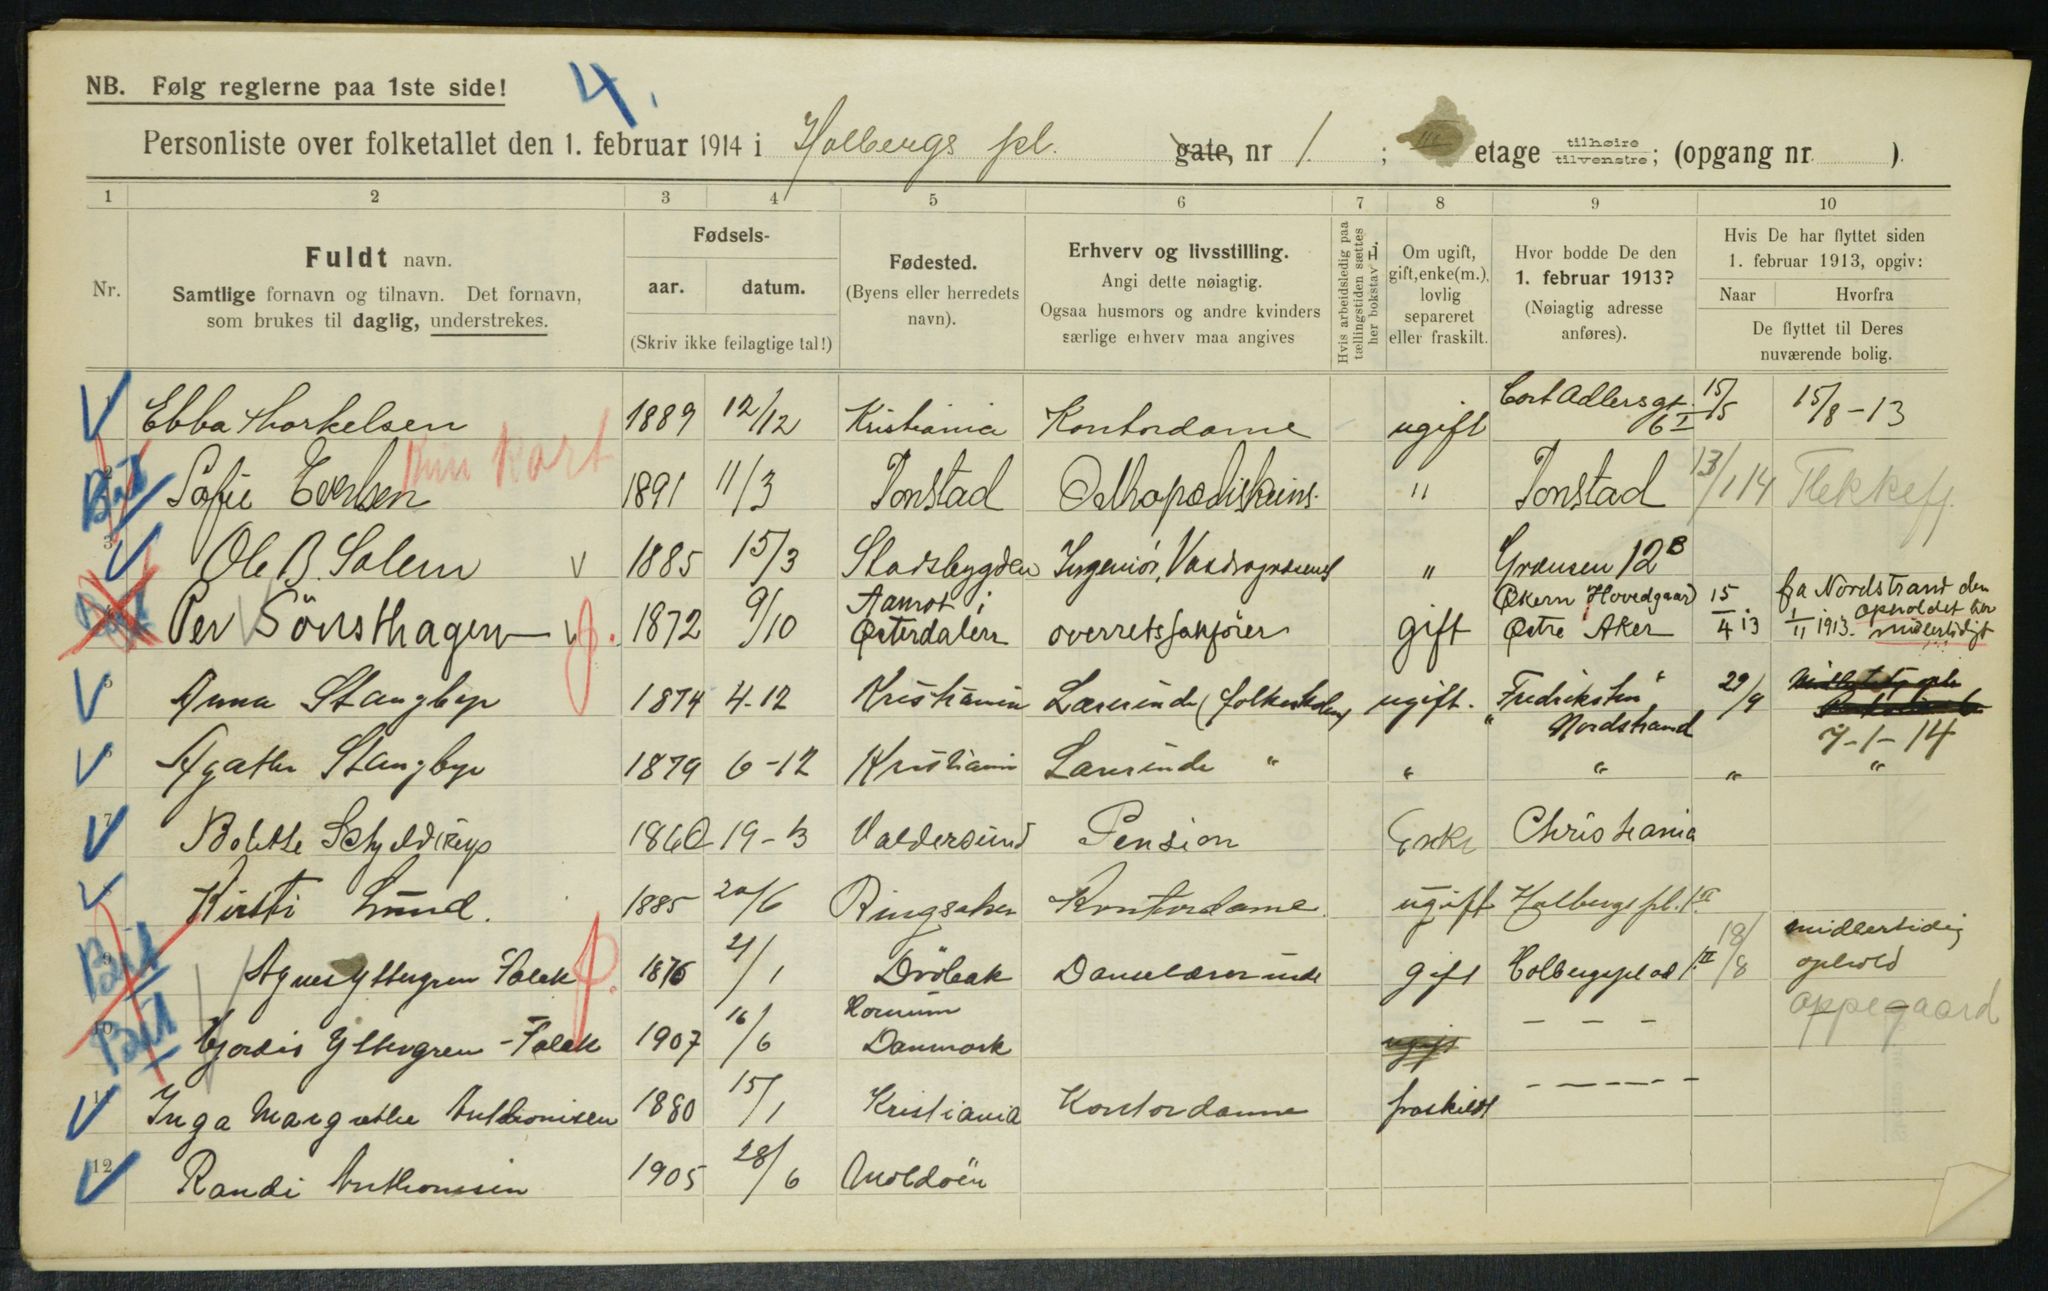 NB. Følg reglerne paa 1ste side!
4.
Personliste over folketallet den 1. februar 1914 i Holbergs pl. gate, nr 1. ; etage tilhøire tilvenstre; (opgang nr. ).
1 2 3 4 5 6 7 8 9 10
Nr.
Fuldt navn.
Samtlige fornavn og tilnavn. Det fornavn,
som brukes til daglig, understrekes.
Fødsels-
aar. datum.
(Skriv ikke feilagtige tal!)
Fødested.
(Byens eller herredets
navn).
Erhverv og livsstilling.
Angi dette nøiagtig.
Ogsaa husmors og andre kvinders
særlige erhverv maa angives
Hvis arbeidsledig paa
tællingstiden sættes
her bokstav L.
Om ugift,
gift, enke(m.),
lovlig
separeret
eller fraskilt.
Hvor bodde De den
1. februar 1913?
(Nøiagtig adresse
anføres).
Hvis De har flyttet siden
1. februar 1913, opgiv:
Naar Hvorfra
De flyttet til Deres
nuværende bolig.
1 Ebba Thorkelsen 1889 12/12 Kristiania Kontordame ugift Cort Adlersgt. 6 I 15/15 15/8-13
kort
2 Sofie 1891 11/3 Tonstad " Tonstad 13/1 14 Flekkefj.
3 Ole B. Solem v 1885 15/3 Stadsbygden Ingeniör, " Grænsen 12 B
4 Per Sönsthagen 1872 9/10 Aamot i Østerdalen overretssakfører gift Økern Hovedgaard Østre Aker 15/4 13 fra Nordstrand den 1/11 1913. opholdet her midlertidigt
5 Anna Stangbye 1874 4-12 Kristiania Lærerinde (folkeskolen) ugift. "Fredriksten" Nordstrand 29/9 7-1-14
6 Agathe Stangbye 1879 6-12 Kristiania Lærerinde " " " " "
7 Bolette Schjelderup 1860 19-3 Valdersund Pension Enke Christiania
8 Kirsti Lund. 1885 20/6 Ringsaker Kontordame. ugift Holbergs pl. 1 II
9 Agnes Yttergren Falck 1876 2/1 Dröbak Danselærerinde gift Holbergspl ad 1. II 18/8 midlertidig ophold
Oppegaard
10 Hjordis Yttergren-Falck 1907 16/6 Danmark ugift - - -
11 Inga Margrethe Anthonisen 1880 15/1 Kristiania Kontordame fraskildt - - - - -
12 Randi Anthonisen 1905 28/6 Moldöen